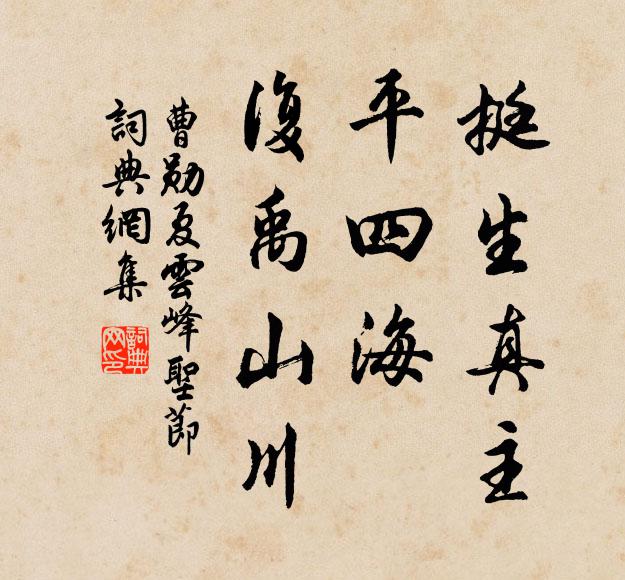 挺生真主
平四海
復禹山川
曹勛夏雲峰聖節
詞典網集
詞典网印